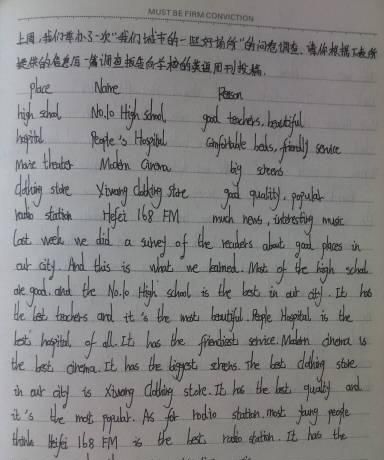 MUST BE FIRM CONVICTION
上周,我们举办了一次"我们城市的一些好场所"的问卷调查.请你根据下表所
提供的信息后一篇调查报告向学校的英语周刊投稿.
Place Name Reason
high school No.10 High School good teachers, beautiful
hospital People's Hospital comfortable beds, friendly service
Movie theater Modern Cinema big screens
Clothing store Xiwang Clothing Store good quality, popular
radio station Hefei 168 FM much news, interesting music
Last week we did a survey of the readers about good places in
our city. And this is what we learned. Most of the high school
are good. and the No.10 High school is the best in our city. It has
the best teachers and it's the most beautiful. People Hospital is the
best hospital of all. It has the friendiest service. Modern cinema is
the best cinema. It has the biggest screens. The best clothing store
in our city is Xiwang Clothing store. It has the best quality and
it's the most popular. As for radio station. most young people
think Hefei 168 FM is the best radio station. It has the